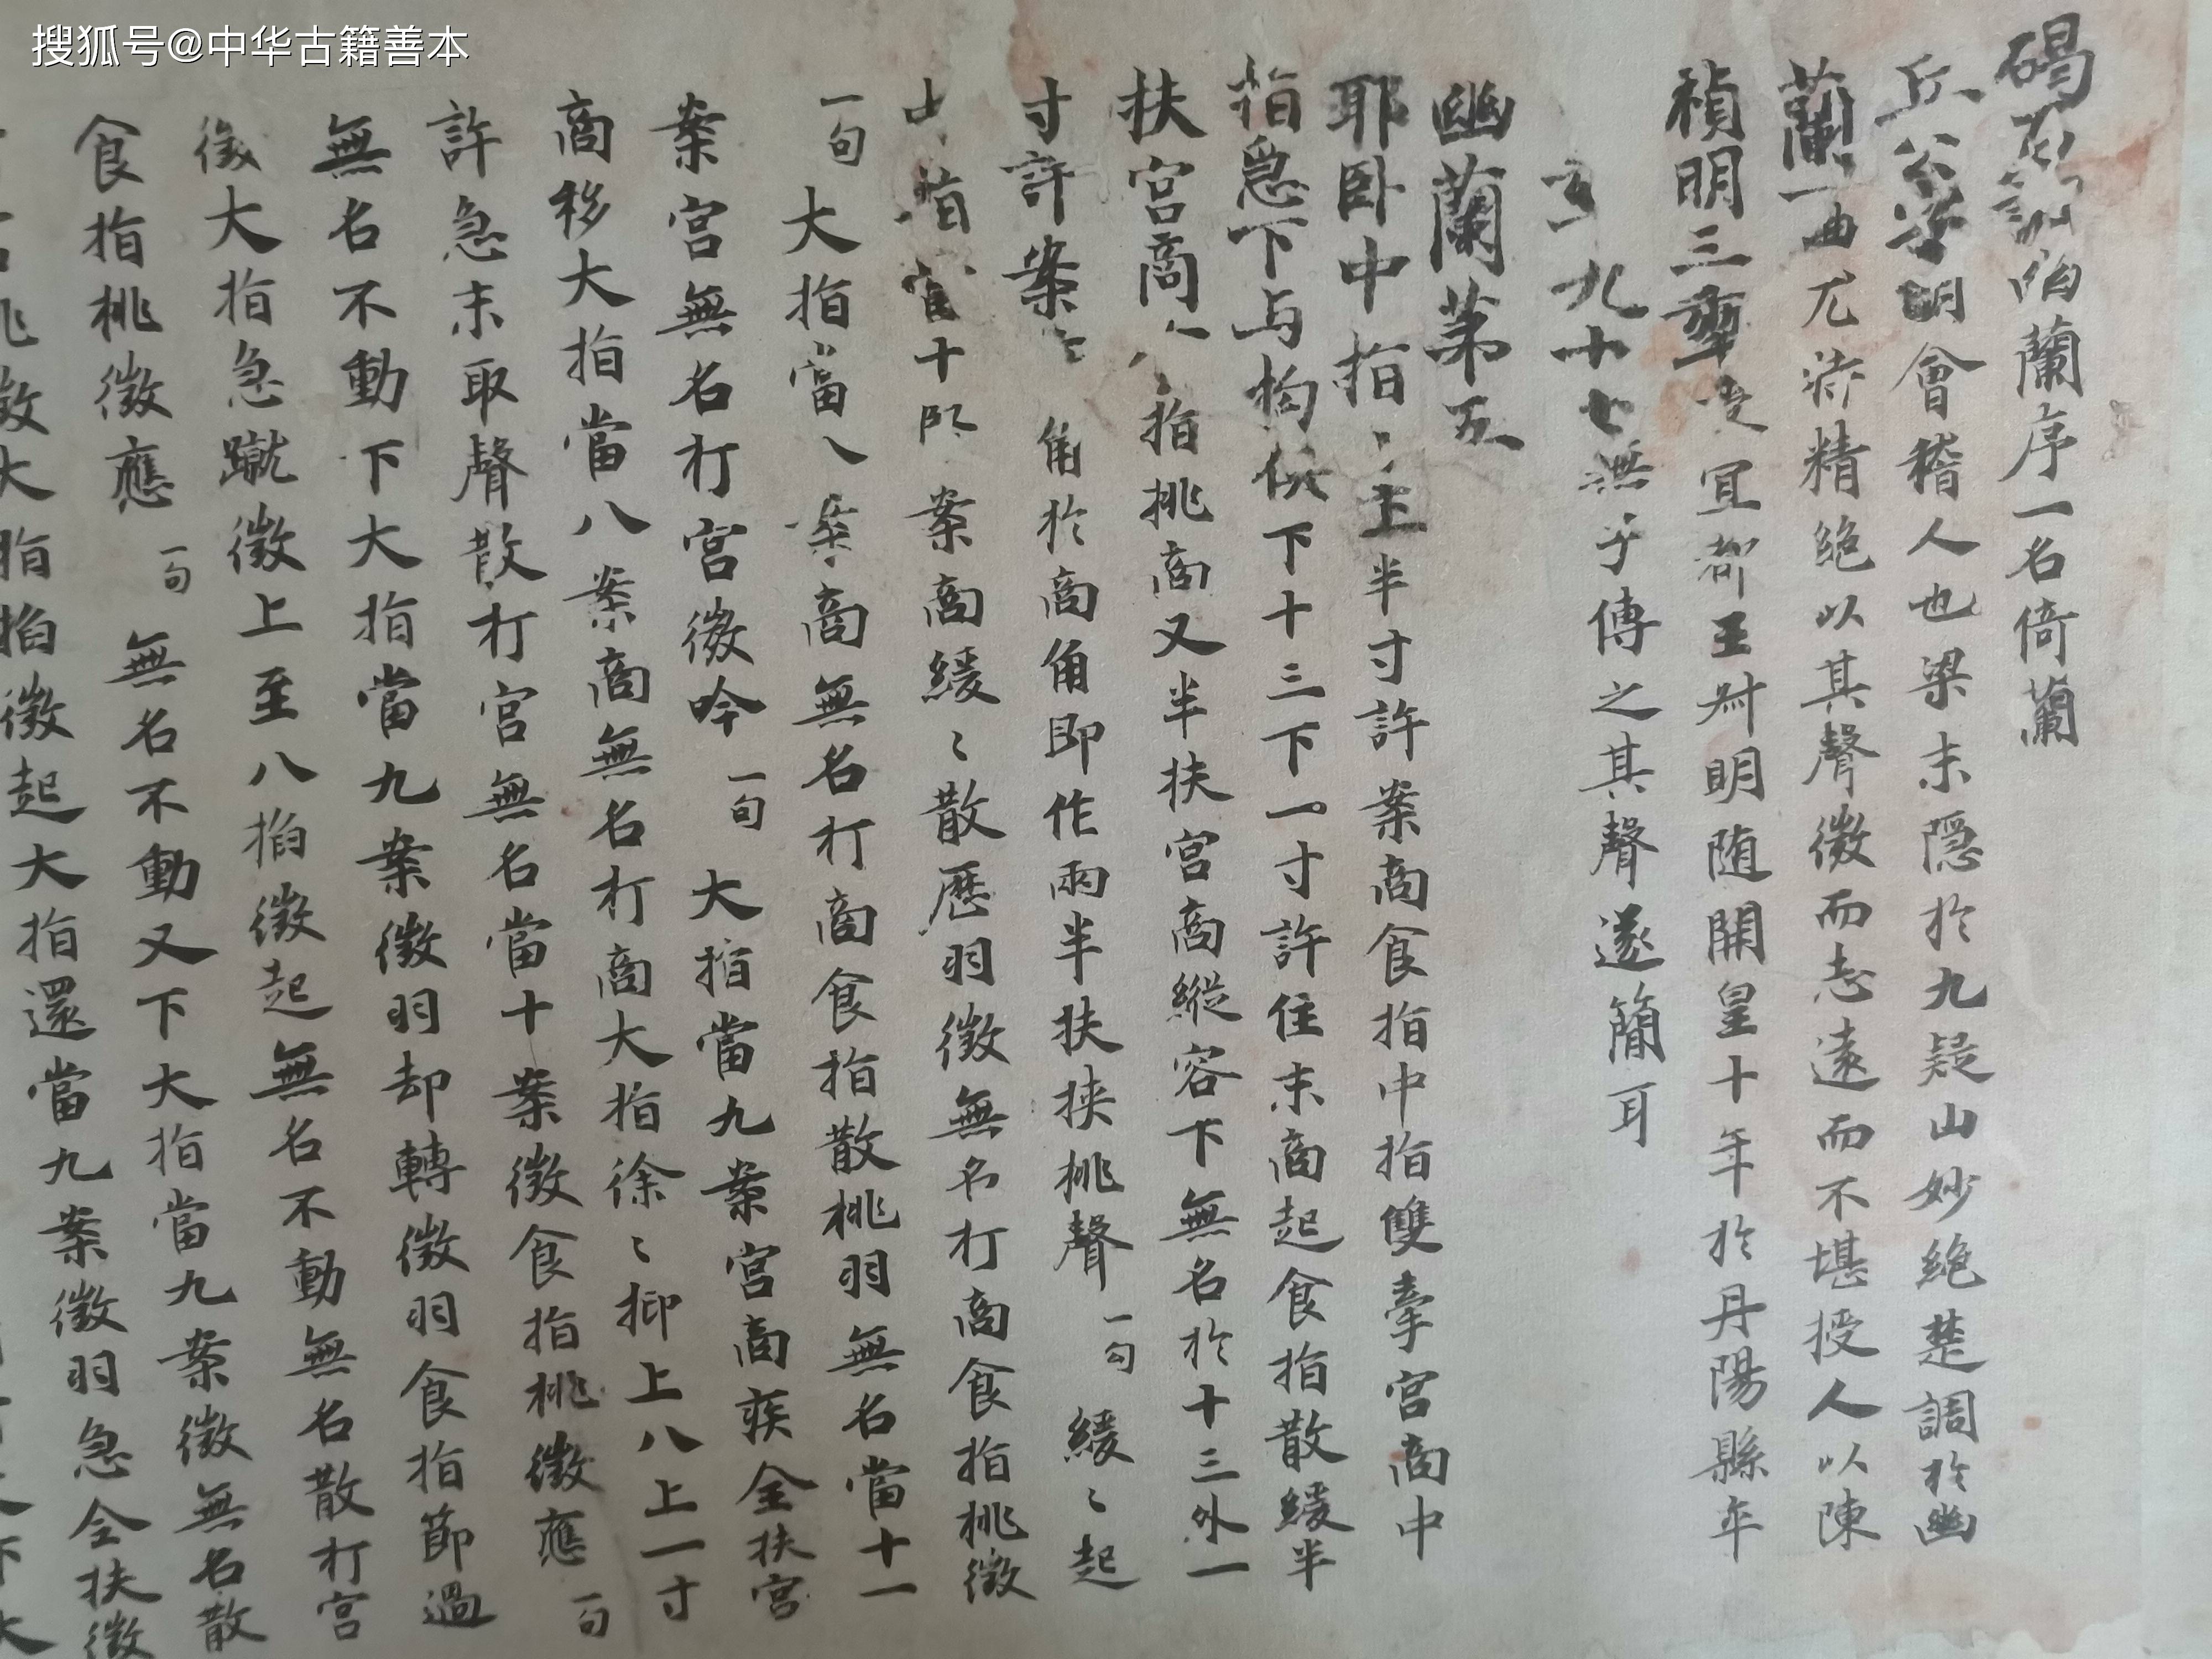 搜狐号@中华古籍善本
碣石調幽蘭序一名倚蘭
丘公字明會稽人也梁末隱於九疑山妙絶楚調於幽
蘭一曲尤淂精絶以其聲微而志遠而不堪授人以陳
禎明三年 宜都王叔明随開皇十年於丹陽縣卒
九十七無子傳之其聲遂簡耳
幽蘭苐五
耶卧中指 上半寸許案商食指中指雙牽宮商中
指急下与拘俱下十三下一寸許住末商起食指散緩半
扶宮商 指挑商又半扶宮商縱容下無名於十三外一
寸許案 角於商角即作兩半扶挾挑聲一句 緩〻起
指當十 案商緩〻散歷羽徵無名打商食指挑徵
一句 大指當八案商無名打商食指散挑羽無名當十一
案宮無名打宮徵吟一句 大指當九案宮商疾全扶宮
商移大指當八案商無名打商大指徐〻抑上八上一寸
許急末取聲散打宮無名當十案徵食指挑徵應一句
無名不動下大指當九案徵羽却轉徵羽食指節過
徵大指急蹴徵上至八掐徵起無名不動無名散打宮
食指挑徵應一句 無名不動又下大指當九案徵無名散
大指掐徵起大指還當九案徵羽急全扶徵